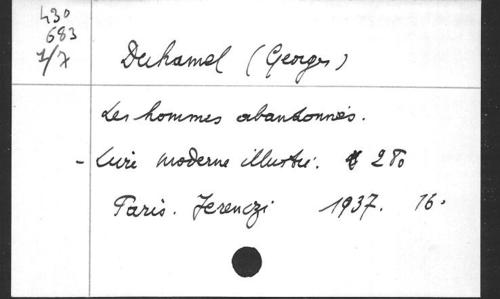 430
683
1/7
Duhamel (Georges)
Les hommes abandonnés.
- Livre moderne illustré. 280
Paris. Ferenczi 1937. 16°